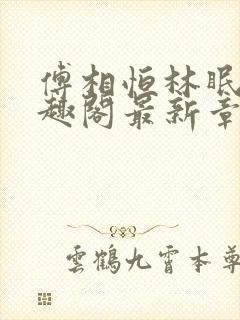 傅相恒林眠
趣阁最新章
雲鶴九霄本尊